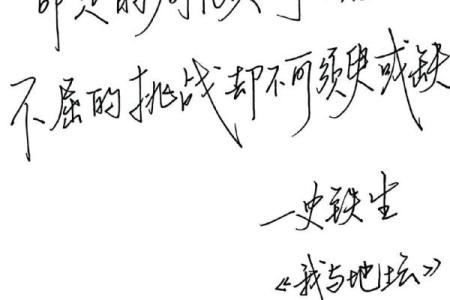 不屈的挑战却不可须臾或缺
一史铁生
《我与地坛》